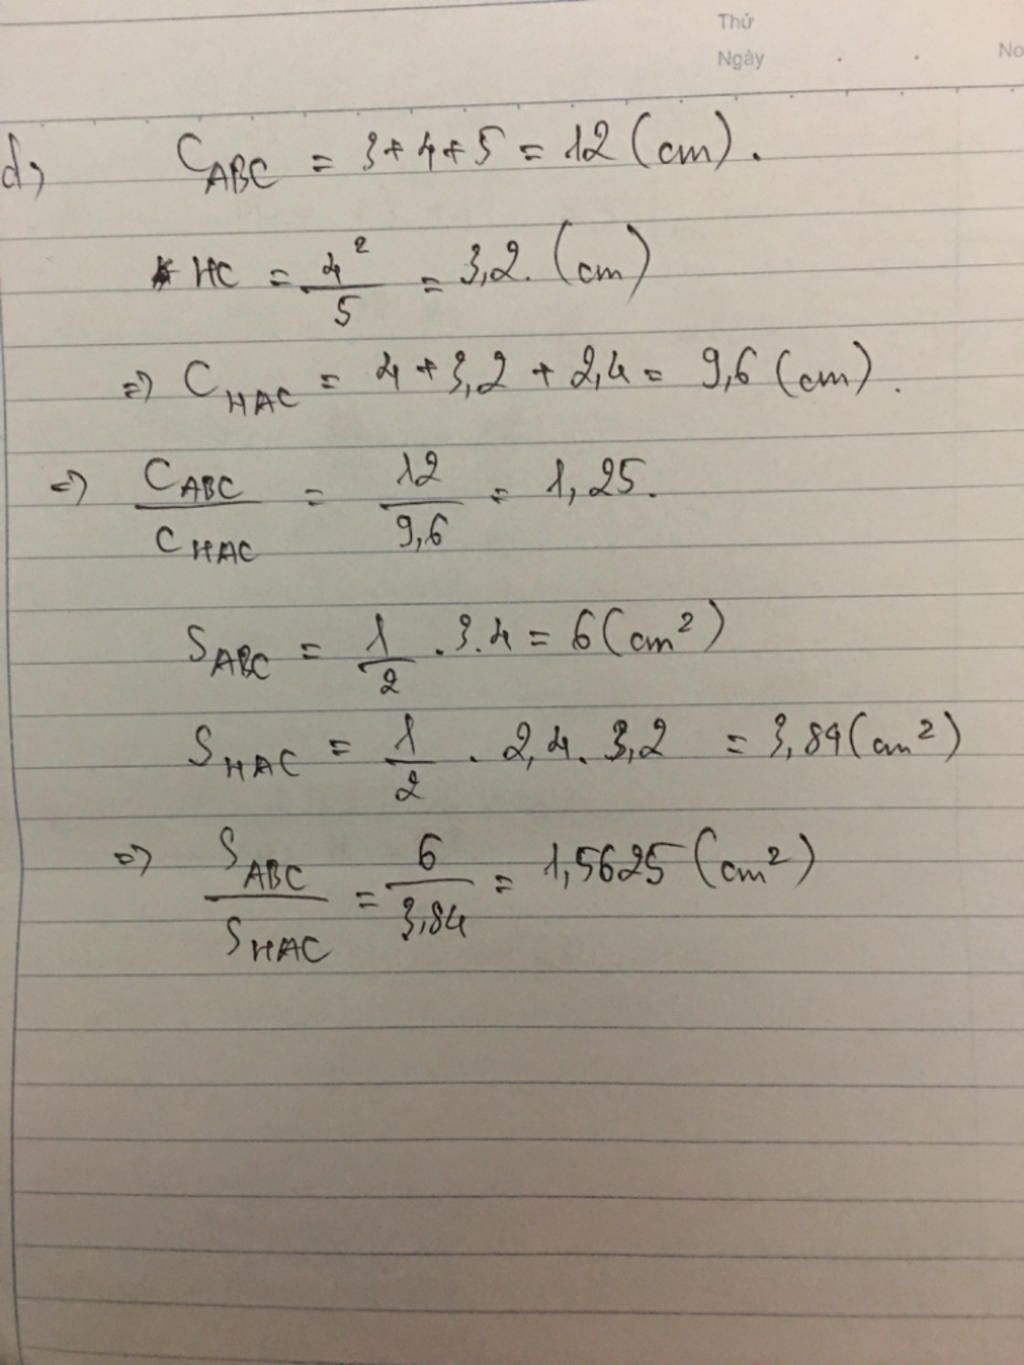 Thứ
Ngày
No
d, C_ABC = 3 + 4 + 5 = 12 (cm).
* HC = 4² / 5 = 3,2. (cm)
=> C_HAC = 4 + 3,2 + 2,4 = 9,6 (cm).
=> C_ABC / C_HAC = 12 / 9,6 = 1,25.
S_ABC = 1/2 . 3.4 = 6 (cm²)
S_HAC = 1/2 . 2,4. 3,2 = 3,84 (cm²)
=> S_ABC / S_HAC = 6 / 3,84 = 1,5625 (cm²)